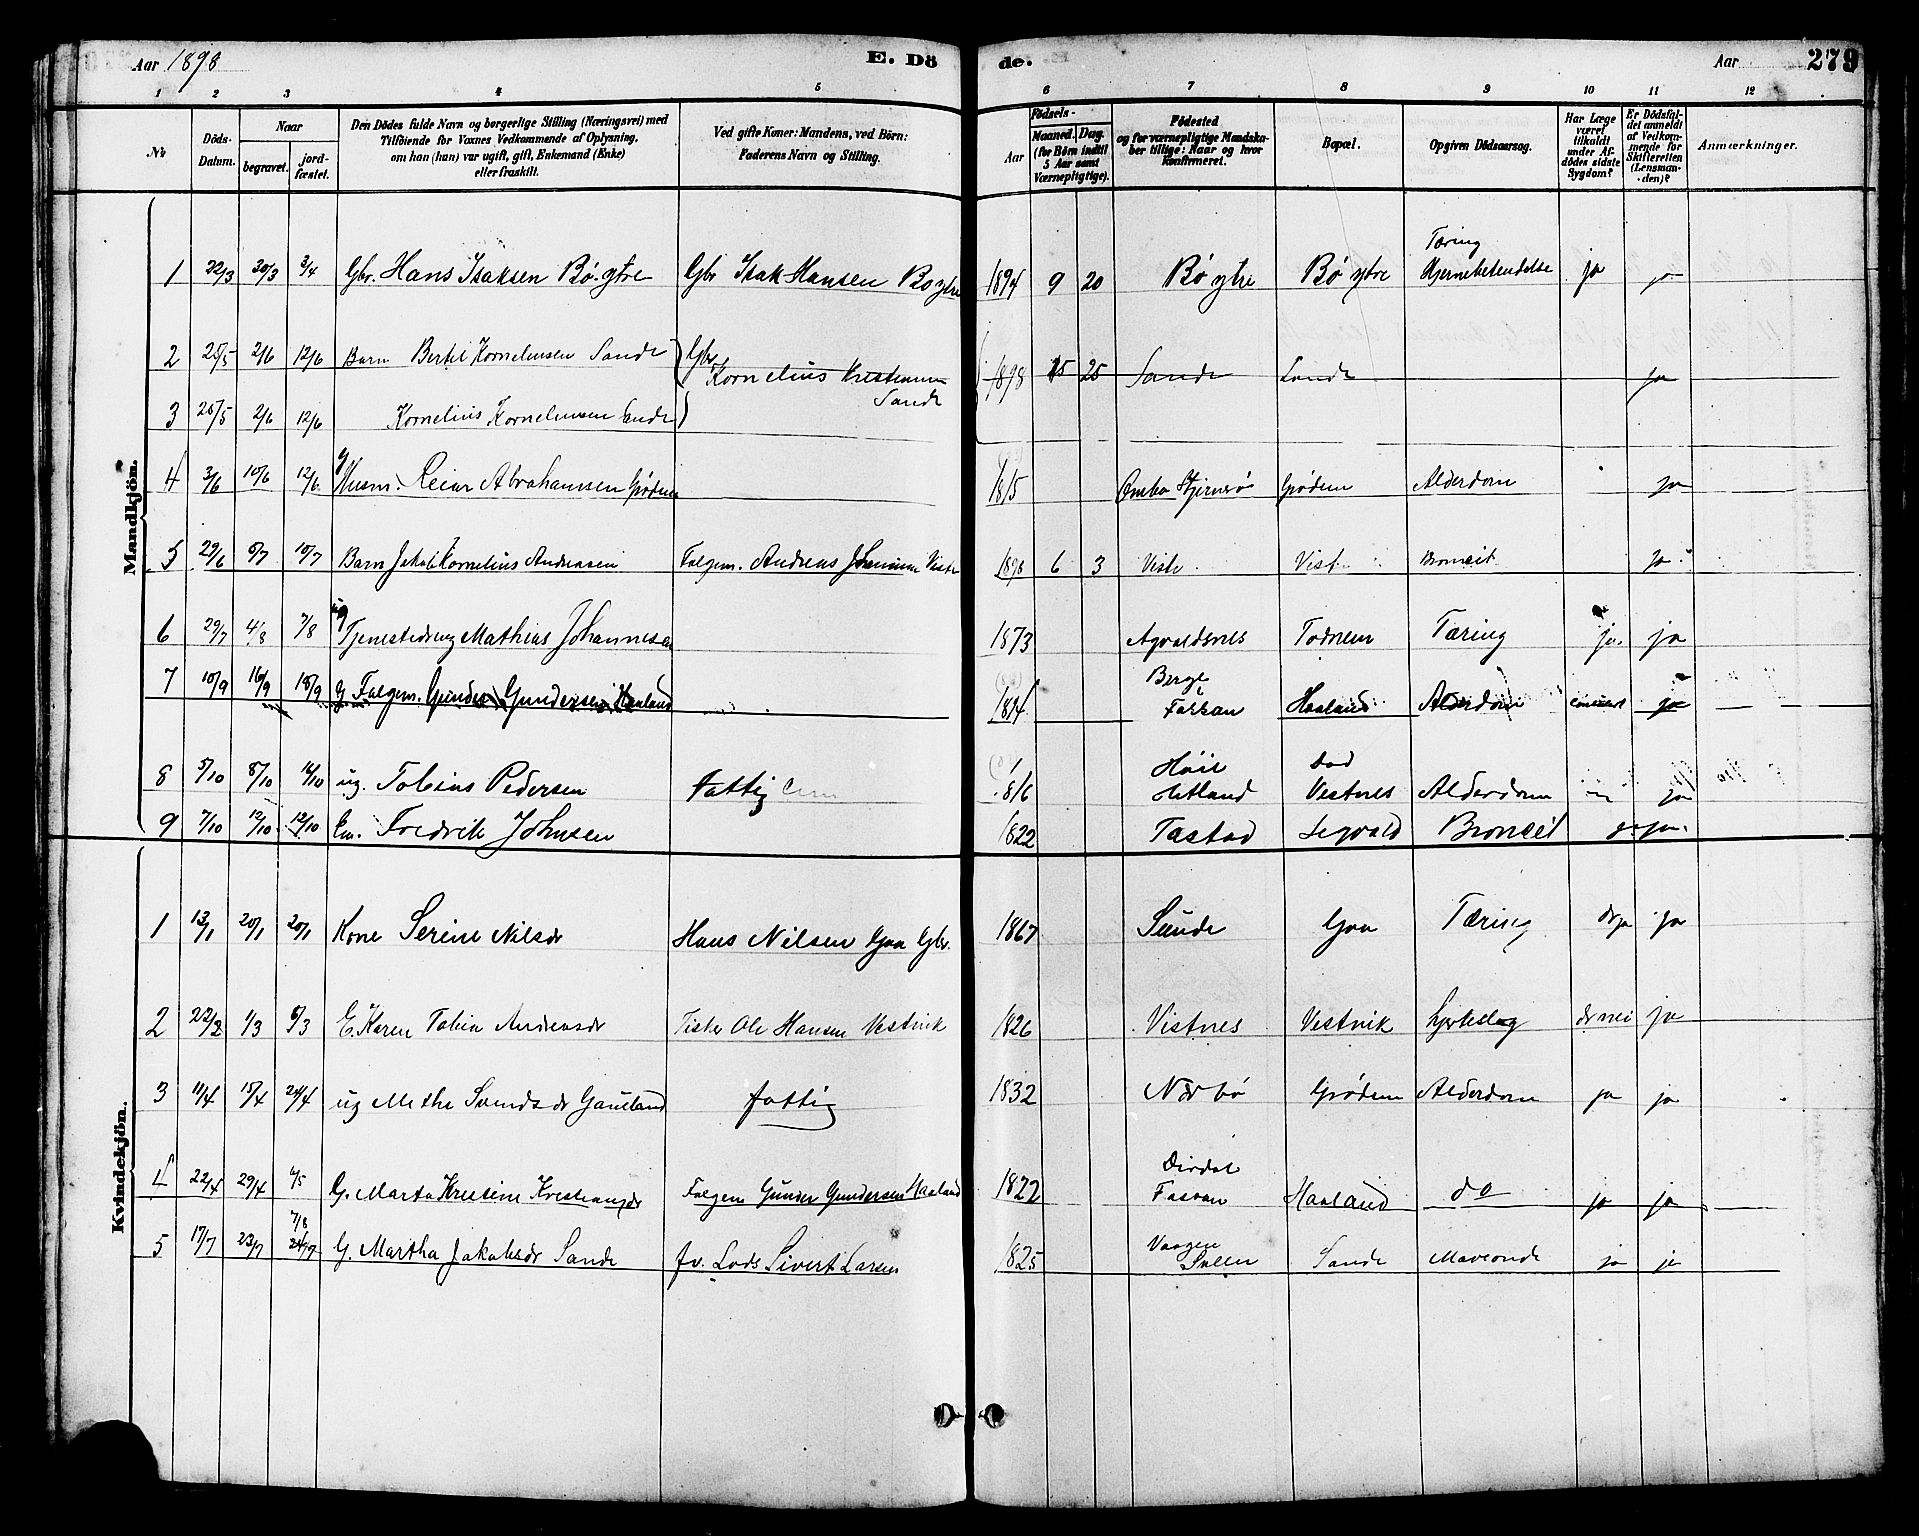 Aar 1898
E. Dö
de.
Aar
279
1 2 3 4 5 6 7 8 9 10 11 12
Nr
Döds-Datum.
Naar
begravet.
jord-fæstet.
Den Dödes fulde Navn og borgerlige Stilling (Næringsvei) med
Tilföiende for Voxnes Vedkommende af Oplysning,
om han (hun) var ugift, gift, Enkemand (Enke)
eller fraskilt.
Ved gifte Koner: Mandens, ved Börn:
Faderens Navn og Stilling.
Födsels-
Aar
Maaned. Dag.
(for Börn indtil
5 Aar samt
Værnepligtige).
Födested
og for værnepligtige Mandska-
ber tillige: Naar og hvor
Konfirmeret.
Bopæl.
Opgiven Dödsaarsag.
Har Læge
været
tilkaldt
under Af-
dödes sidste
Sygdom?
Er Dödsfal-
det anmeldt
af Vedkom-
mende for
Skifteretten
(Lensman-
den)?
Anmærkninger.
Mandkjön.
1 22/3 30/3 3/4 Gbr. Hans Isaksen Bø ytre Gbr Isak Hansen Bø ytre 1894 9 20 Bø ytre Bø ytre Tæring Hjernebetendelse ja ja
2 25/5 2/6 12/6 Barn Bertel Kornelensen Sande Gbr Kornelius Sande 1898 25 Sande Sande ja
3 25/5 2/6 12/6 Kornelius Kornelensen Sande
4 3/6 10/6 12/6 g Husm. Reier Abrahamsen Grødem 1815 Ombo Grødem Alderdom ja
5 29/6 6/7 10/7 Barn Jakob Kornelius Andreasen Folgem. Andreas Viste 1898 6 3 Viste Viste ja
6 29/7 4/8 7/8 ug Tjenestedreng Mathias Johannesen 1873 Agvaldsnes Todnem Tæring ja ja
7 10/9 16/9 18/9 g. Folgem. Gunder Gundersen Haaland 1814 Berge Haaland Alderdom ja
8 5/10 8/10 16/10 ug. Tobias Pedersen fattig 1816 Høie Hetland Vestnes Alderdom ja
9 7/10 12/10 12/10 Em. Fredrik Johnsen 1822 Tastad ja
Kvindekjön.
1 13/1 20/1 20/1 Kone Serine Nilsdr Hans Nilsen Goa Gbr. 1867 Sunde Goa Tæring ja ja
2 22/2 1/3 6/3 E. Karen Tobia Andreasdr Fisker Ole Hansen Vestvik 1826 Vistnes Vestvik Hjerteslag nei ja
3 11/4 15/4 24/4 ug Methe Svendsdr Gauland fattig 1832 Nærbø Grødem Alderdom ja ja
4 22/4 29/4 1/5 G. Marta Kristine Kristiansdr Folgem Gunder Gundersen Haaland 1822 Dirdal Haaland do ja ja
5 17/7 23/7 7/8 G. Martha Jakobsdr Sande fv. Lods Sivert Larsen 1825 Vaagen Sande Maveonde ja ja